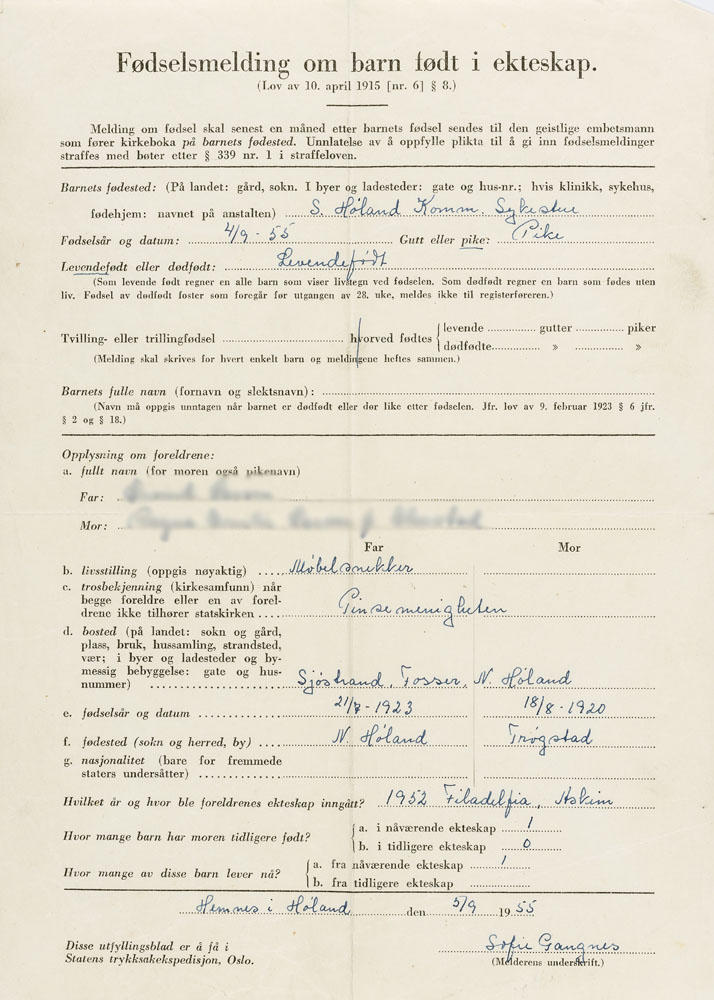 Fødselsmelding om barn født i ekteskap.
(Lov av 10. april 1915 [nr. 6] § 8.)
Melding om fødsel skal senest en måned etter barnets fødsel sendes til den geistlige embetsmann
som fører kirkeboka på barnets fødested. Unnlatelse av å oppfylle plikta til å gi inn fødselsmeldinger
straffes med bøter etter § 339 nr. 1 i straffeloven.
Barnets fødested: (På landet: gård, sokn. I byer og ladesteder: gate og hus-nr.; hvis klinikk, sykehus,
fødehjem: navnet på anstalten) S. Høland Komm. Sykestue
Fødselsår og datum: 4/9 - 55 Gutt eller pike: Pike
Levendefødt eller dødfødt: Levendefødt
(Som levende født regner en alle barn som viser livstegn ved fødselen. Som dødfødt regner en barn som fødes uten
liv. Fødsel av dødfødt foster som foregår før utgangen av 28. uke, meldes ikke til registerføreren.)
Tvilling- eller trillingfødsel hvorved fødtes levende gutter piker
dødfødte » »
(Melding skal skrives for hvert enkelt barn og meldingene heftes sammen.)
Barnets fulle navn (fornavn og slektsnavn):
(Navn må oppgis unntagen når barnet er dødfødt eller dør like etter fødselen. Jfr. lov av 9. februar 1923 § 6 jfr.
§ 2 og § 18.)
Opplysning om foreldrene:
a. fullt navn (for moren også pikenavn)
Far:
Mor:
Far Mor
b. livsstilling (oppgis nøyaktig) Møbelsnekker
c. trosbekjenning (kirkesamfunn) når
begge foreldre eller en av forel-
drene ikke tilhører statskirken Pinsemenigheten
d. bosted (på landet: sokn og gård,
plass, bruk, hussamling, strandsted,
vær; i byer og ladesteder og by-
messig bebyggelse: gate og hus-
nummer) Sjøstrand, Fosser, N. Høland
e. fødselsår og datum 21/7 - 1923 18/8 - 1920
f. fødested (sokn og herred, by) N. Høland Trøgstad
g. nasjonalitet (bare for fremmede
staters undersåtter)
Hvilket år og hvor ble foreldrenes ekteskap inngått? 1952 Filadelfia, Askim
Hvor mange barn har moren tidligere født? a. i nåværende ekteskap 1
b. i tidligere ekteskap 0
Hvor mange av disse barn lever nå? a. fra nåværende ekteskap 1
b. fra tidligere ekteskap
Hemnes i Høland den 5/9 1955
Disse utfyllingsblad er å få i
Statens trykksakekspedisjon, Oslo.
Sofie Gangnes
(Melderens underskrift.)